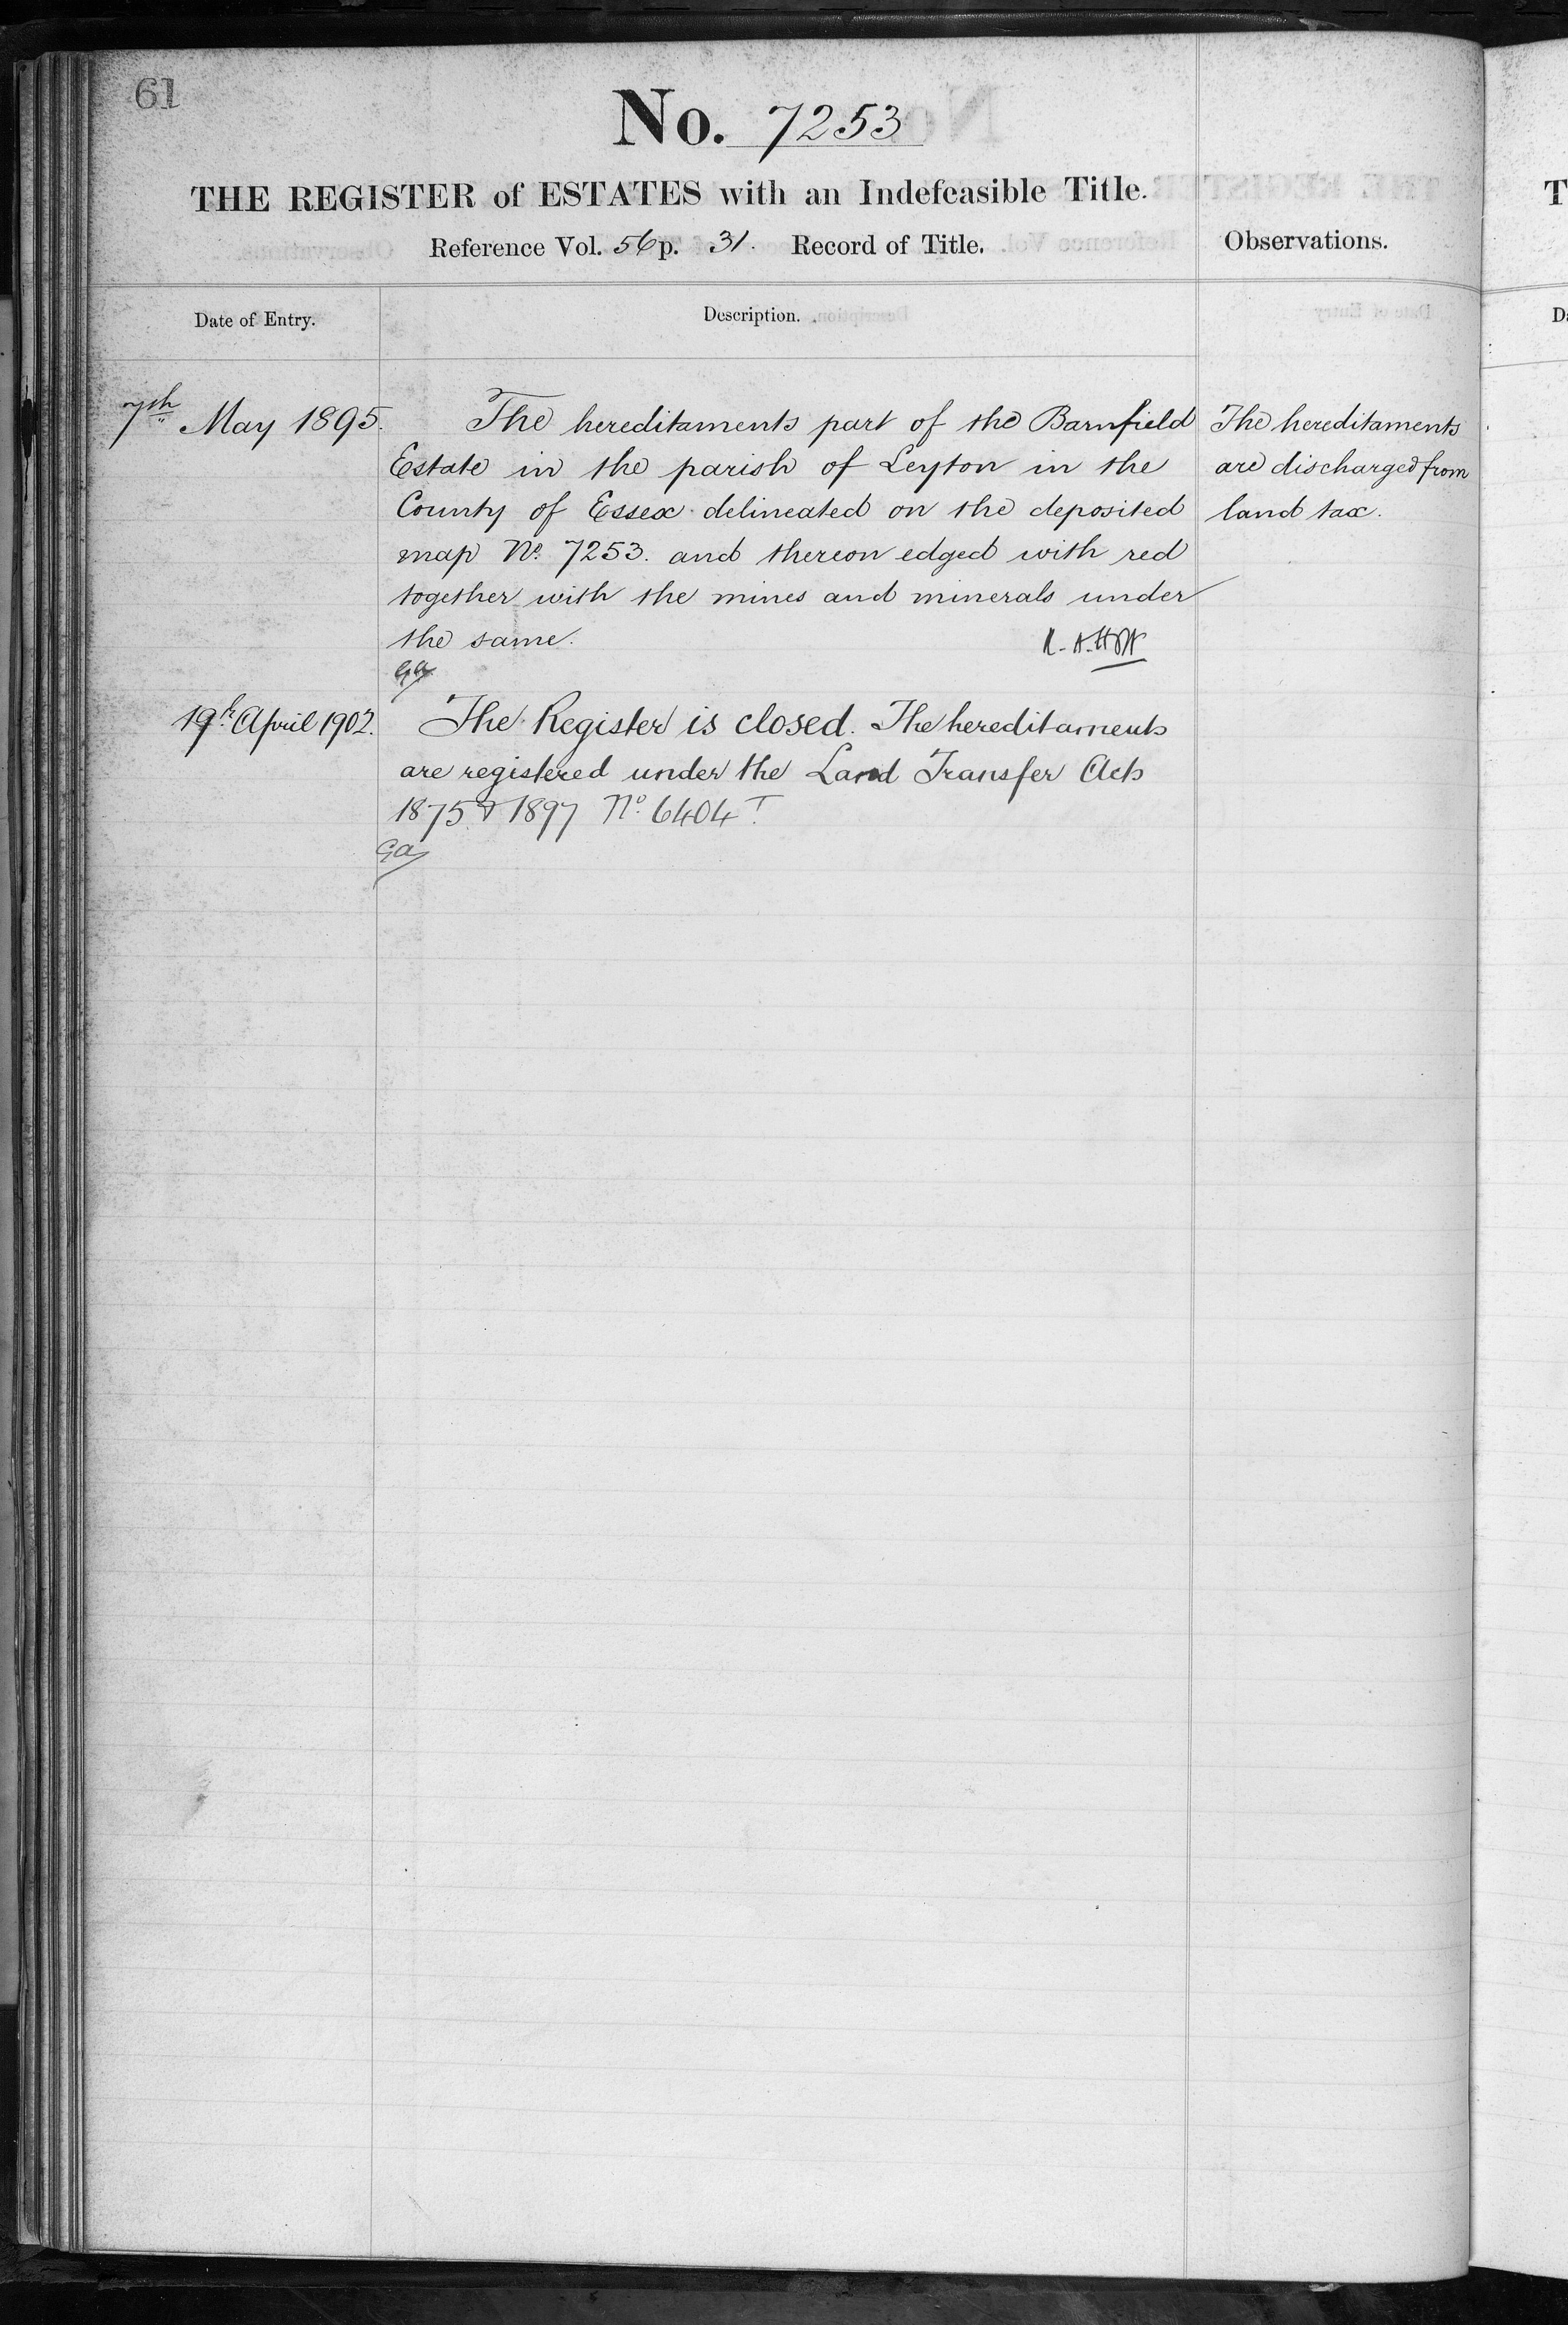 61
No. 7253
THE REGISTER of ESTATES with an Indefeasible Title.
Reference Vol. 56 p. 31. Record of Title.
Observations.
Date of Entry.
Description.
7th May 1895.
The hereditaments part of the Barnfield
Estate in the parish of Leyton in the
County of Essex delineated on the deposited
map No. 7253. and thereon edged with red
together with the mines and minerals under
the same.
The hereditaments
are discharged from
land tax.
19th April 1902.
The Register is closed. The hereditaments
are registered under the Land Transfer Acts
1875 & 1897 No. 6404 T.